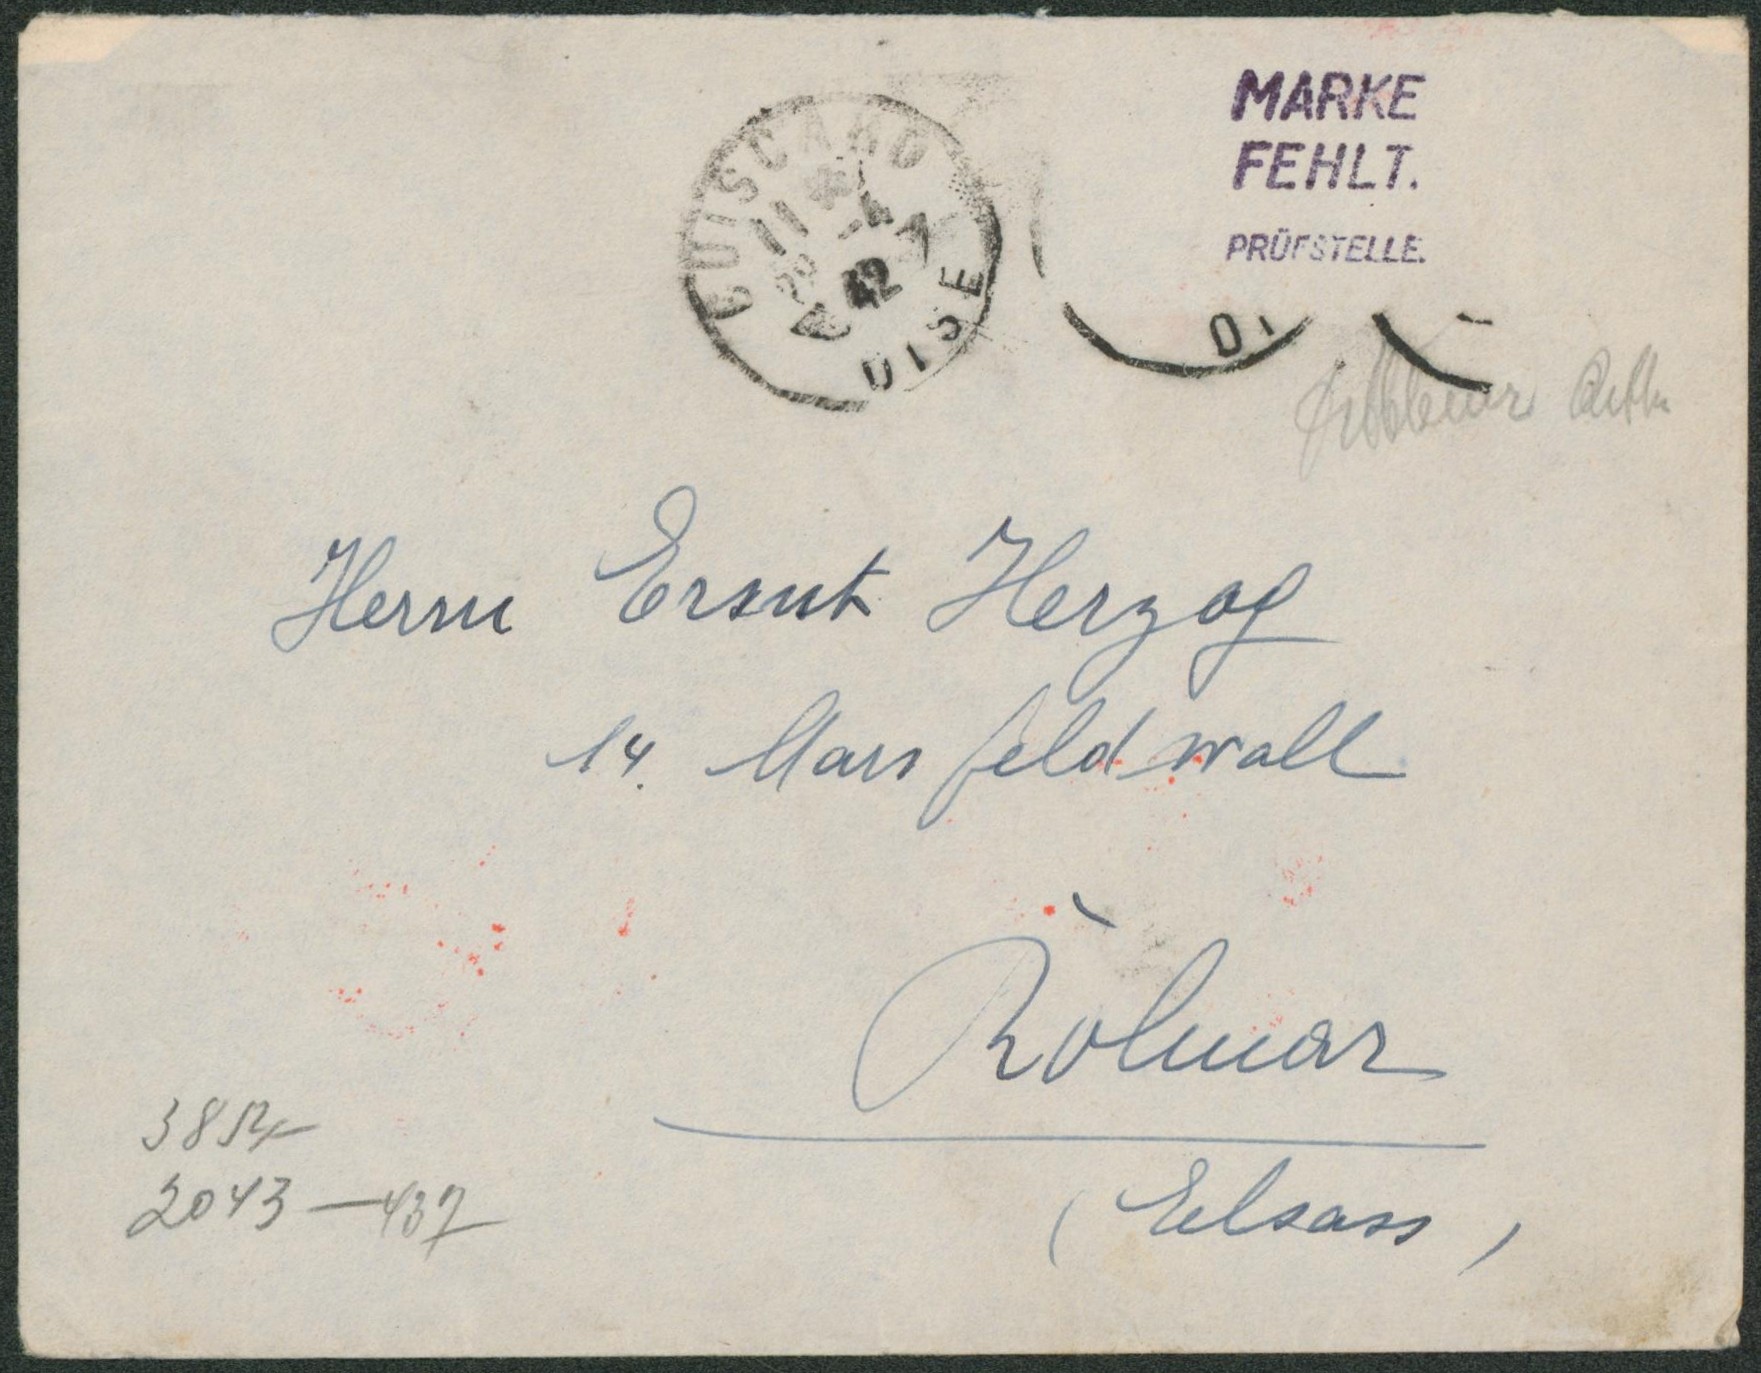 MARKE
FEHLT.
PRÜFSTELLE.
GUISCARD
11
29 -4
42
OISE
OI
Herrn Ernst Herzog
14. Marsfeldwall
Kolmar
(Elsass)
2043 — 437